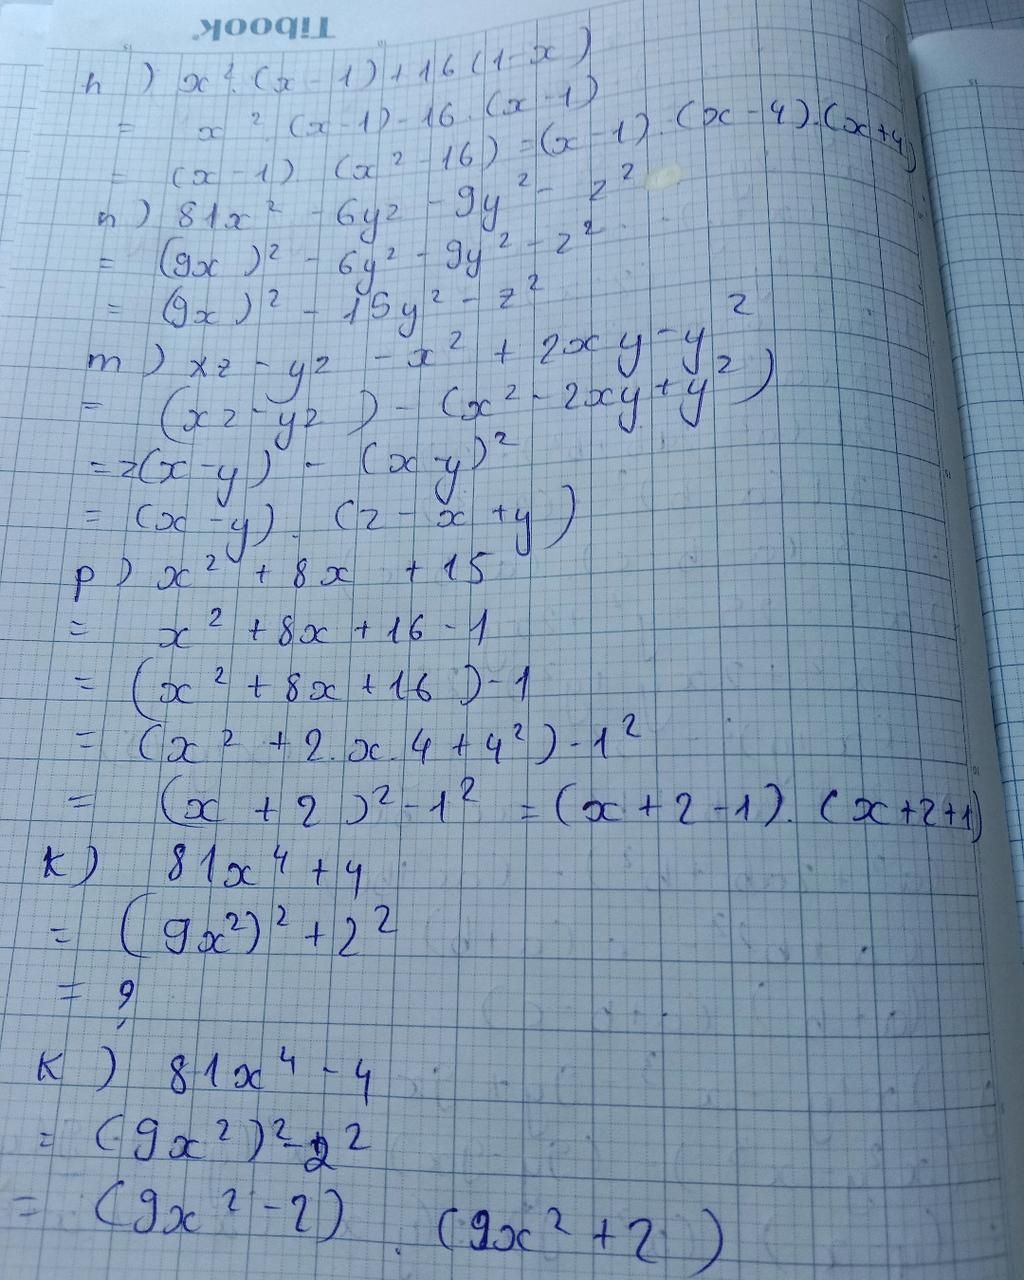 Tibook
h) x². (x - 1) + 16 (1 - x)
= x². (x - 1) - 16. (x - 1)
= (x - 1). (x² - 16) = (x - 1). (x - 4). (x + 4)
n) 81x² - 6yz - 9y² - z²
= (9x)² - 6y² - 9y² - z²
= (9x)² - 15y² - z²
m) xz - yz - x² + 2xy - y²
= (xz - yz) - (x² - 2xy + y²)
= z(x - y) - (x - y)²
= (x - y). (z - x + y)
p) x² + 8x + 15
= x² + 8x + 16 - 1
= (x² + 8x + 16) - 1
= (x² + 2.x.4 + 4²) - 1²
= (x + 2)² - 1² = (x + 2 - 1). (x + 2 + 1)
K) 81x⁴ + 4
= (9x²)² + 2²
= ?
K) 81x⁴ - 4
= (9x²)² - 2²
= (9x² - 2). (9x² + 2)